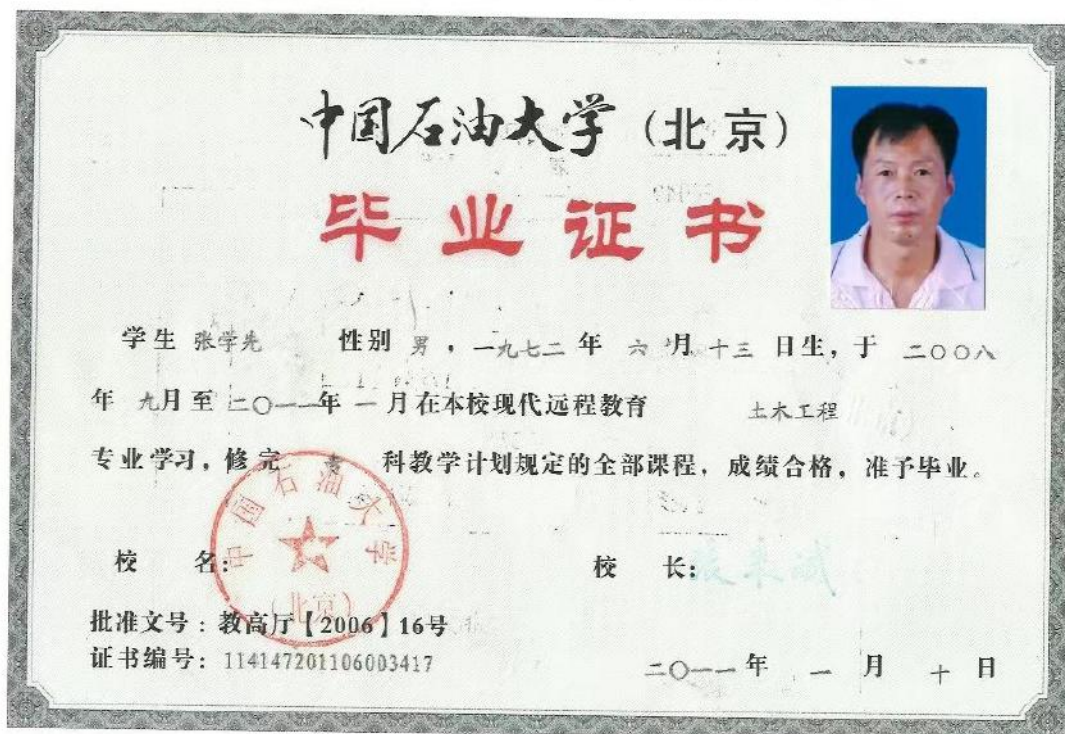 中国石油大学（北京）
毕业证书
学生 张学先 性别 男，一九七二年 六 月 十三 日生，于 二〇〇八
年 九月至 二〇一一年 一月在本校现代远程教育 土木工程
专业学习，修完 专 科教学计划规定的全部课程，成绩合格，准予毕业。
校 名： 校 长：张来斌
中国石油大学
（北京）
批准文号：教高厅【2006】16号
证书编号：114147201106003417
二〇一一年 一 月 十 日